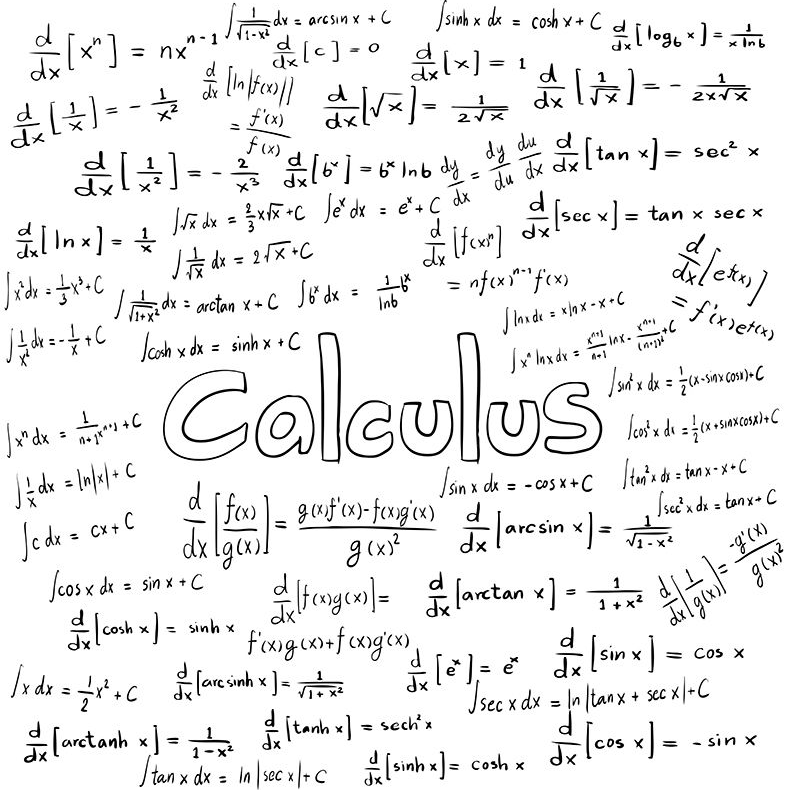 d/dx [xⁿ] = nxⁿ⁻¹
∫ 1/√(1-x²) dx = arcsin x + C
∫sinh x dx = cosh x + C
d/dx [log_b x] = 1/(x ln b)
d/dx [c] = 0
d/dx [x] = 1
d/dx [ln|f(x)|] = f'(x)/f(x)
d/dx [1/x] = - 1/x²
d/dx [√x] = 1/(2√x)
d/dx [1/√x] = - 1/(2x√x)
d/dx [1/x²] = - 2/x³
d/dx [bˣ] = bˣ ln b
dy/dx = dy/du du/dx
d/dx [tan x] = sec² x
d/dx [ln x] = 1/x
∫√x dx = 2/3 x√x + C
∫eˣ dx = eˣ + C
d/dx [sec x] = tan x sec x
∫ 1/√x dx = 2√x + C
d/dx [f(x)ⁿ]
= nf(x)ⁿ⁻¹ f'(x)
d/dx [e^f(x)]
= f'(x) e^f(x)
∫x² dx = 1/3 x³ + C
∫ 1/√(1+x²) dx = arctan x + C
∫bˣ dx = 1/ln b bˣ
∫ln x dx = x ln x - x + C
∫ 1/x² dx = - 1/x + C
∫cosh x dx = sinh x + C
∫xⁿ ln x dx = xⁿ⁺¹/(n+1) ln x - xⁿ⁺¹/(n+1)² + C
∫sin² x dx = 1/2 (x - sin x cos x) + C
Calculus
∫xⁿ dx = 1/(n+1) xⁿ⁺¹ + C
∫cos² x dx = 1/2 (x + sin x cos x) + C
∫ 1/x dx = ln|x| + C
∫sin x dx = - cos x + C
∫tan² x dx = tan x - x + C
∫sec² x dx = tan x + C
∫c dx = cx + C
d/dx [f(x)/g(x)] = (g(x)f'(x) - f(x)g'(x))/g(x)²
d/dx [arcsin x] = 1/√(1-x²)
∫cos x dx = sin x + C
d/dx [f(x)g(x)] =
f'(x)g(x) + f(x)g'(x)
d/dx [arctan x] = 1/(1+x²)
d/dx [1/g(x)] = -g'(x)/g(x)²
d/dx [cosh x] = sinh x
∫x dx = 1/2 x² + C
d/dx [arcsinh x] = 1/√(1+x²)
d/dx [eˣ] = eˣ
d/dx [sin x] = cos x
∫sec x dx = ln|tan x + sec x| + C
d/dx [arctanh x] = 1/(1-x²)
d/dx [tanh x] = sech² x
d/dx [cos x] = - sin x
∫tan x dx = ln|sec x| + C
d/dx [sinh x] = cosh x